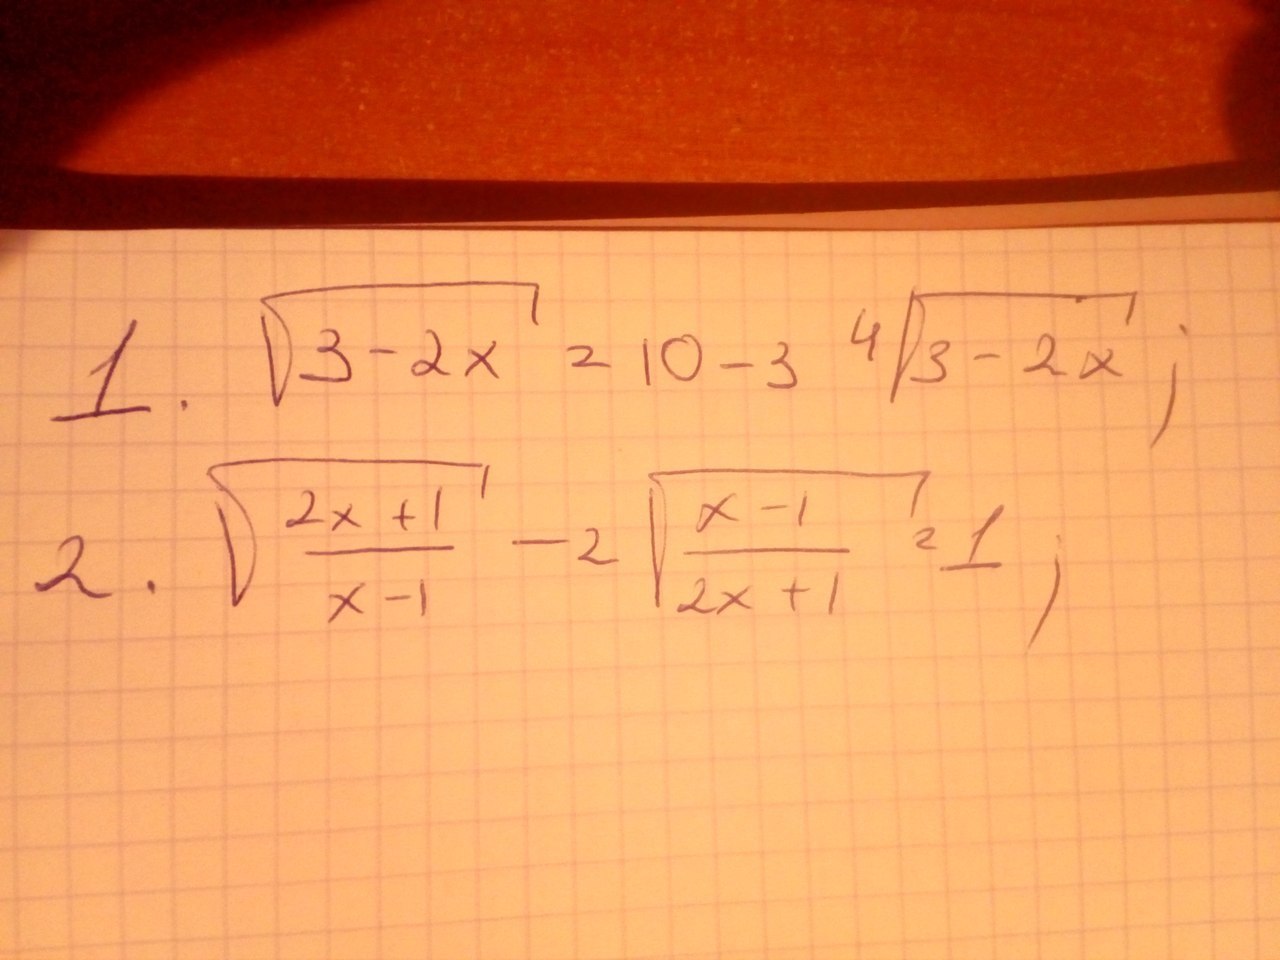 1. √(3-2x) = 10-3 ⁴√(3-2x);
2. √((2x+1)/(x-1)) - 2√((x-1)/(2x+1)) = 1;